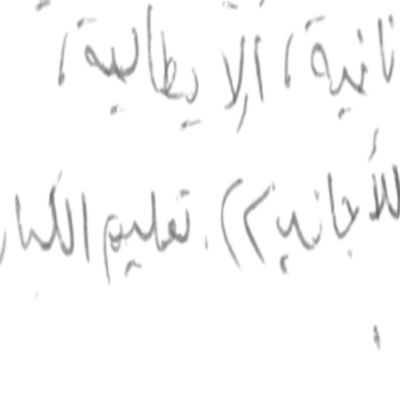 انية، الإيطالية،
للأجانب ٢). تعليم الكبار